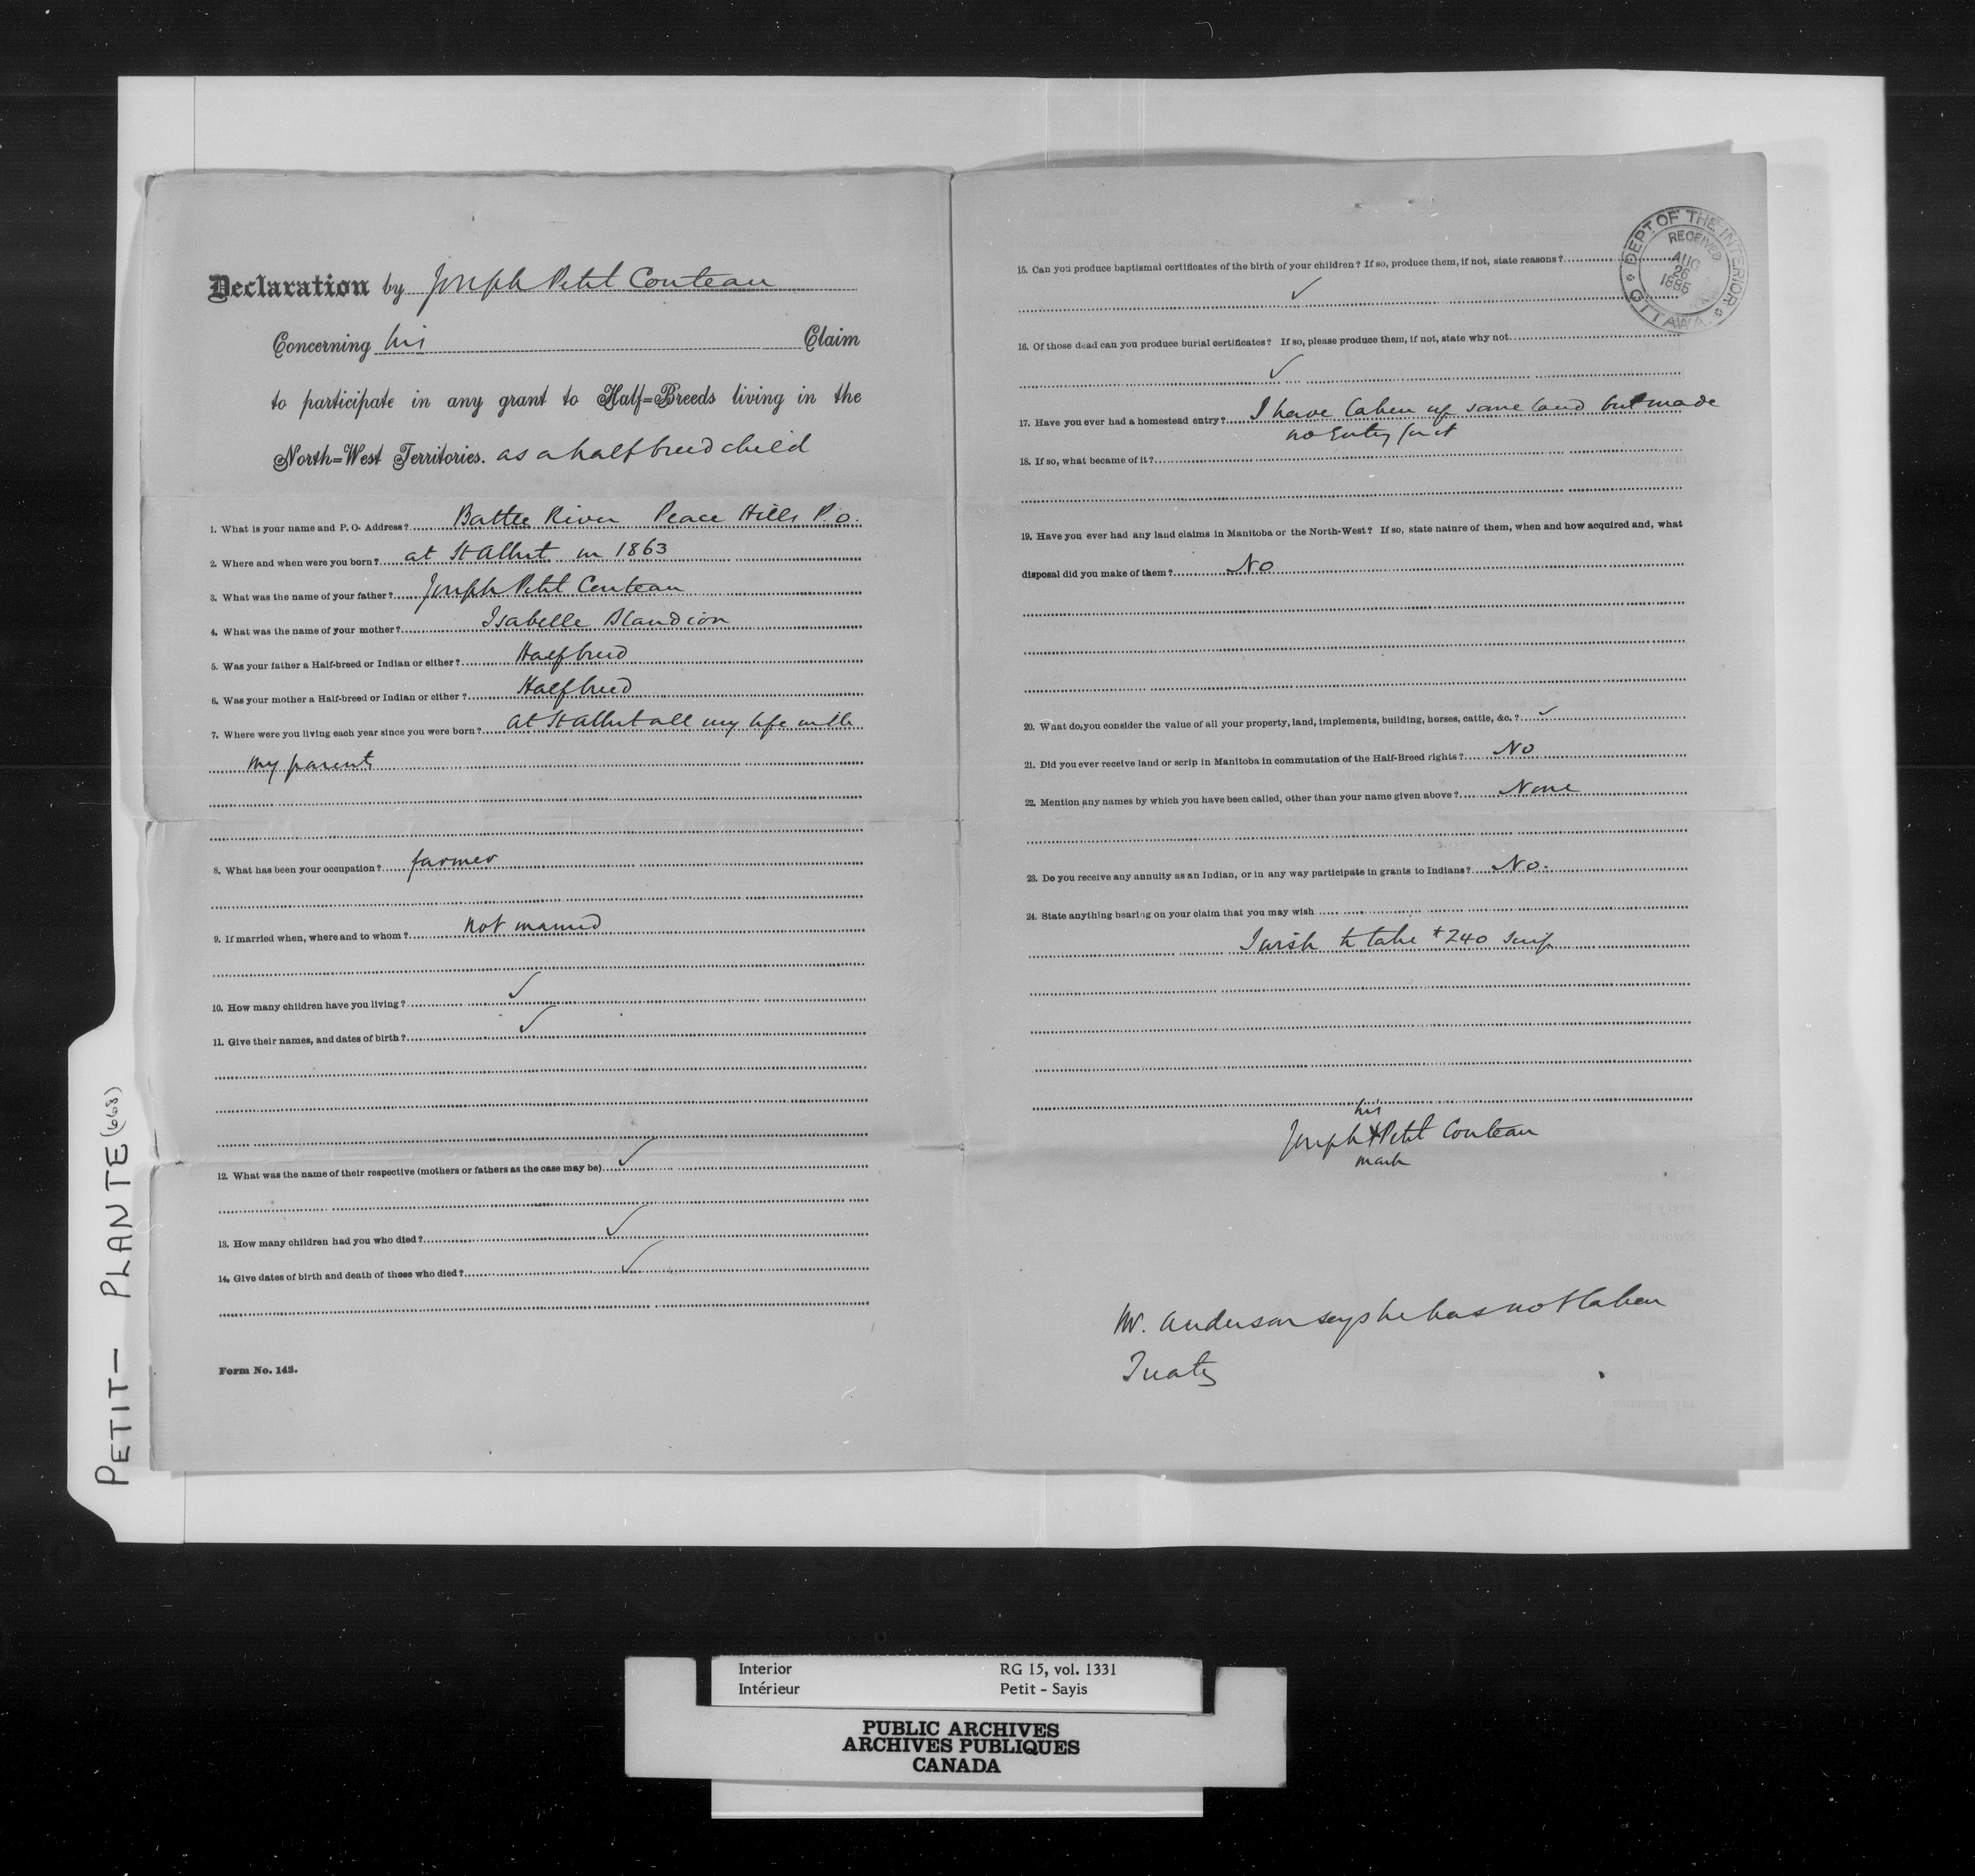 Declaration by Joseph Petit Couteau
Concerning his Claim
to participate in any grant to Half=Breeds living in the
North=West Territories. as a halfbreed child
1. What is your name and P. O. Address? Battle River Peace Hills P.O.
2. Where and when were you born? at St Albert in 1863
3. What was the name of your father? Joseph Petit Couteau
4. What was the name of your mother? Isabelle Blandion
5. Was your father a Half-breed or Indian or either? Halfbreed
6. Was your mother a Half-breed or Indian or either? Halfbreed
7. Where were you living each year since you were born? at St Albert all my life with
my parents
8. What has been your occupation? farmer
9. If married when, where and to whom? not married
10. How many children have you living? ✓
11. Give their names, and dates of birth? ✓
12. What was the name of their respective (mothers or fathers as the case may be) ✓
13. How many children had you who died? ✓
14. Give dates of birth and death of those who died? ✓
Form No. 143.
15. Can you produce baptismal certificates of the birth of your children? If so, produce them, if not, state reasons?
✓
16. Of those dead can you produce burial certificates? If so, please produce them, if not, state why not
✓
17. Have you ever had a homestead entry? I have taken up some land but made
no Entry for it
18. If so, what became of it?
19. Have you ever had any land claims in Manitoba or the North-West? If so, state nature of them, when and how acquired and, what
disposal did you make of them? No
20. What do you consider the value of all your property, land, implements, building, horses, cattle, &c.? ✓
21. Did you ever receive land or scrip in Manitoba in commutation of the Half-Breed rights? No
22. Mention any names by which you have been called, other than your name given above? None
23. Do you receive any annuity as an Indian, or in any way participate in grants to Indians? No.
24. State anything bearing on your claim that you may wish
I wish to take $240 Scrip
his
Joseph X Petit Couteau
mark
Mr. Anderson says he has not taken
Treaty
DEPT OF THE INTERIOR
RECEIVED
AUG
26
1885
OTTAWA
PETIT - PLANTE (668)
Interior RG 15, vol. 1331
Intérieur Petit - Sayis
PUBLIC ARCHIVES
ARCHIVES PUBLIQUES
CANADA